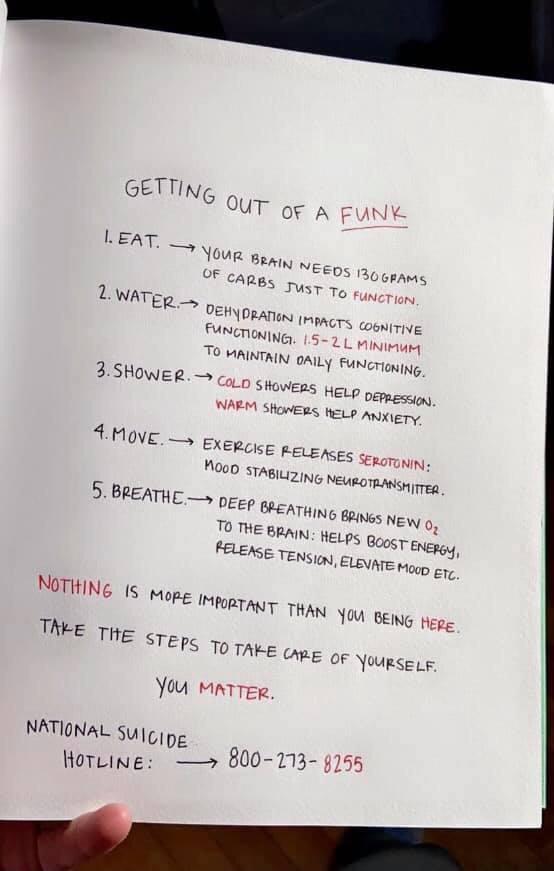 GETTING OUT OF A FUNK
1. EAT. → YOUR BRAIN NEEDS 130 GRAMS
OF CARBS JUST TO FUNCTION.
2. WATER. → DEHYDRATION IMPACTS COGNITIVE
FUNCTIONING. 1.5-2 L MINIMUM
TO MAINTAIN DAILY FUNCTIONING.
3. SHOWER. → COLD SHOWERS HELP DEPRESSION.
WARM SHOWERS HELP ANXIETY.
4. MOVE. → EXERCISE RELEASES SEROTONIN:
MOOD STABILIZING NEUROTRANSMITTER.
5. BREATHE. → DEEP BREATHING BRINGS NEW O₂
TO THE BRAIN: HELPS BOOST ENERGY,
RELEASE TENSION, ELEVATE MOOD ETC.
NOTHING IS MORE IMPORTANT THAN YOU BEING HERE.
TAKE THE STEPS TO TAKE CARE OF YOURSELF.
YOU MATTER.
NATIONAL SUICIDE
HOTLINE: → 800-273-8255